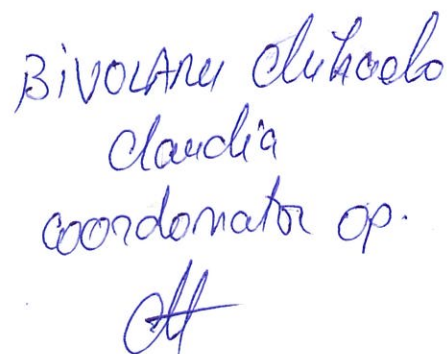 BIVOLARU Mihaela
Claudia
coordonator op.